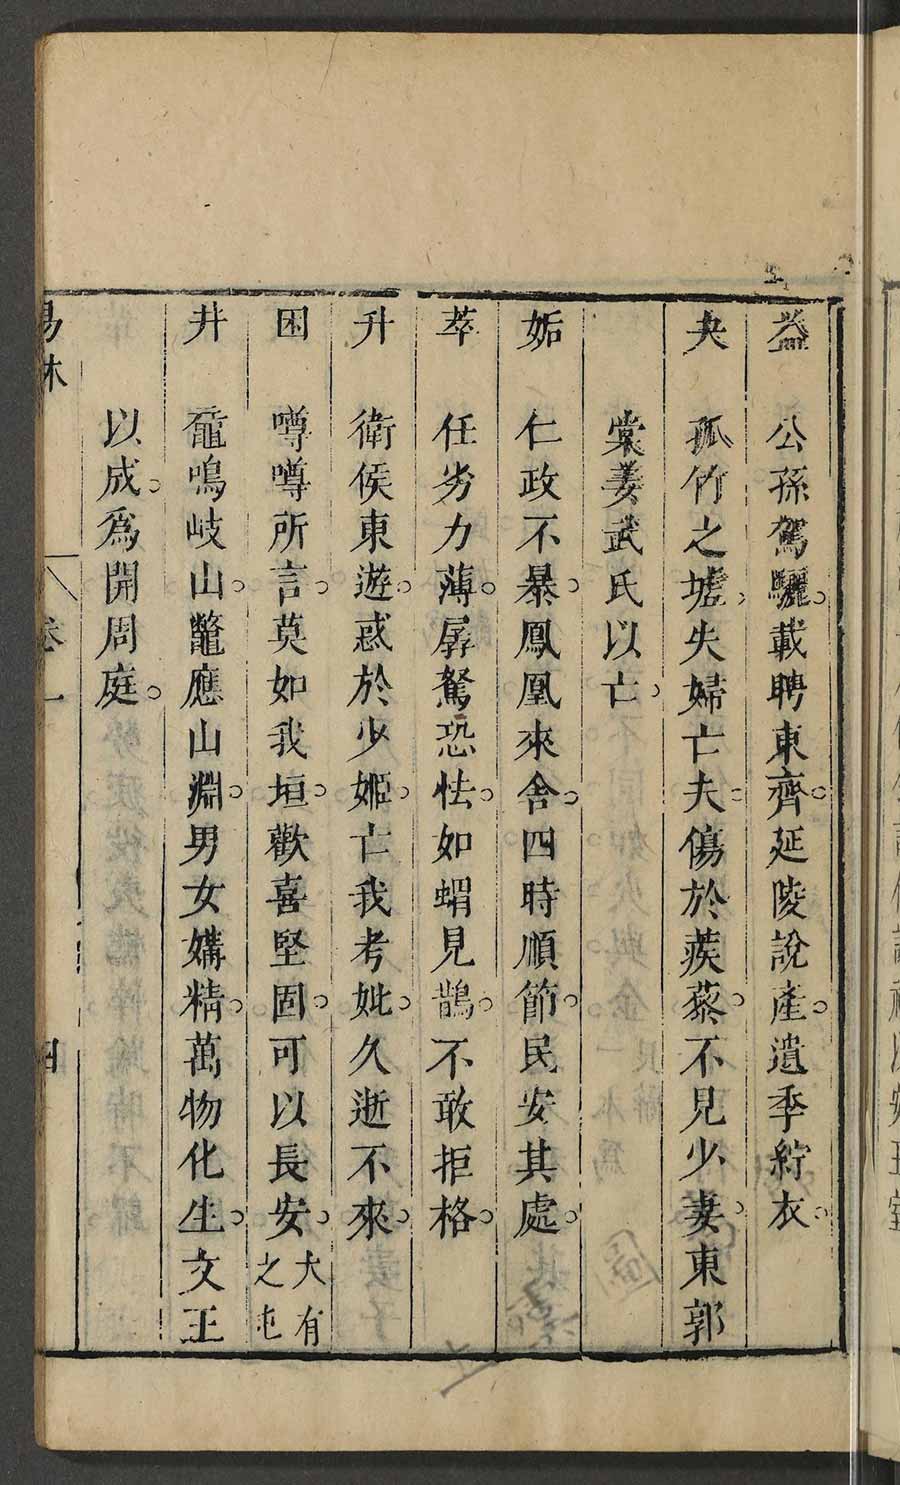 益 公孫駕驪。載聘東齊。延陵說產。遺季紵衣。
夬 孤竹之墟。失婦亡夫。傷於蒺藜。不見少妻。東郭
棠姜武氏以亡。
姤 仁政不暴。鳳凰來舍。四時順節。民安其處。
萃 任劣力薄。孱駑恐怯。如蝟見鵲。不敢拒格。
升 衛侯東遊。惑於少姬。亡我考妣。久逝不來。
困 噂噂所言。莫如我垣。歡喜堅固。可以長安。大有之屯
井 黿鳴岐山。鼈應山淵。男女媾精。萬物化生。文王
以成。為開周庭。
易林 卷一 四